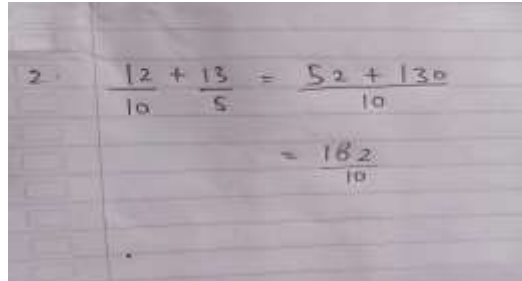 2. 12/10 + 13/5 = 52 + 130/10
= 182/10